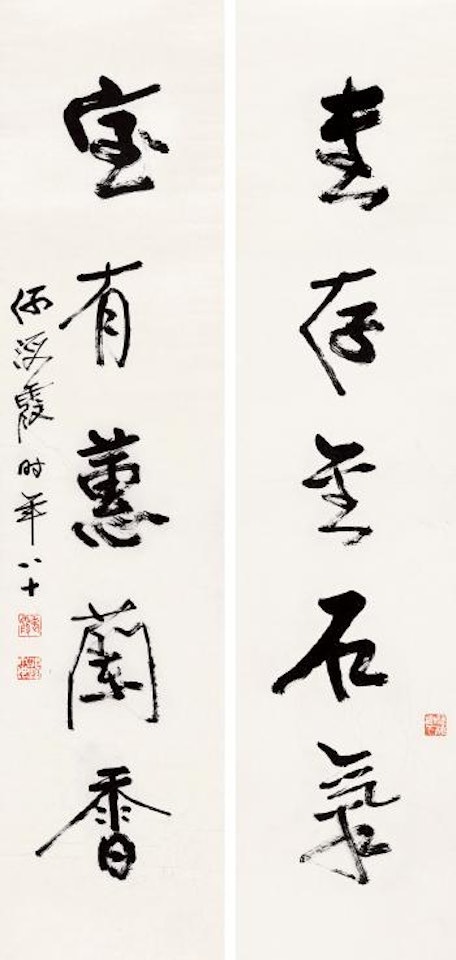 書存金石氣
室有蕙蘭香
何海霞时年八十